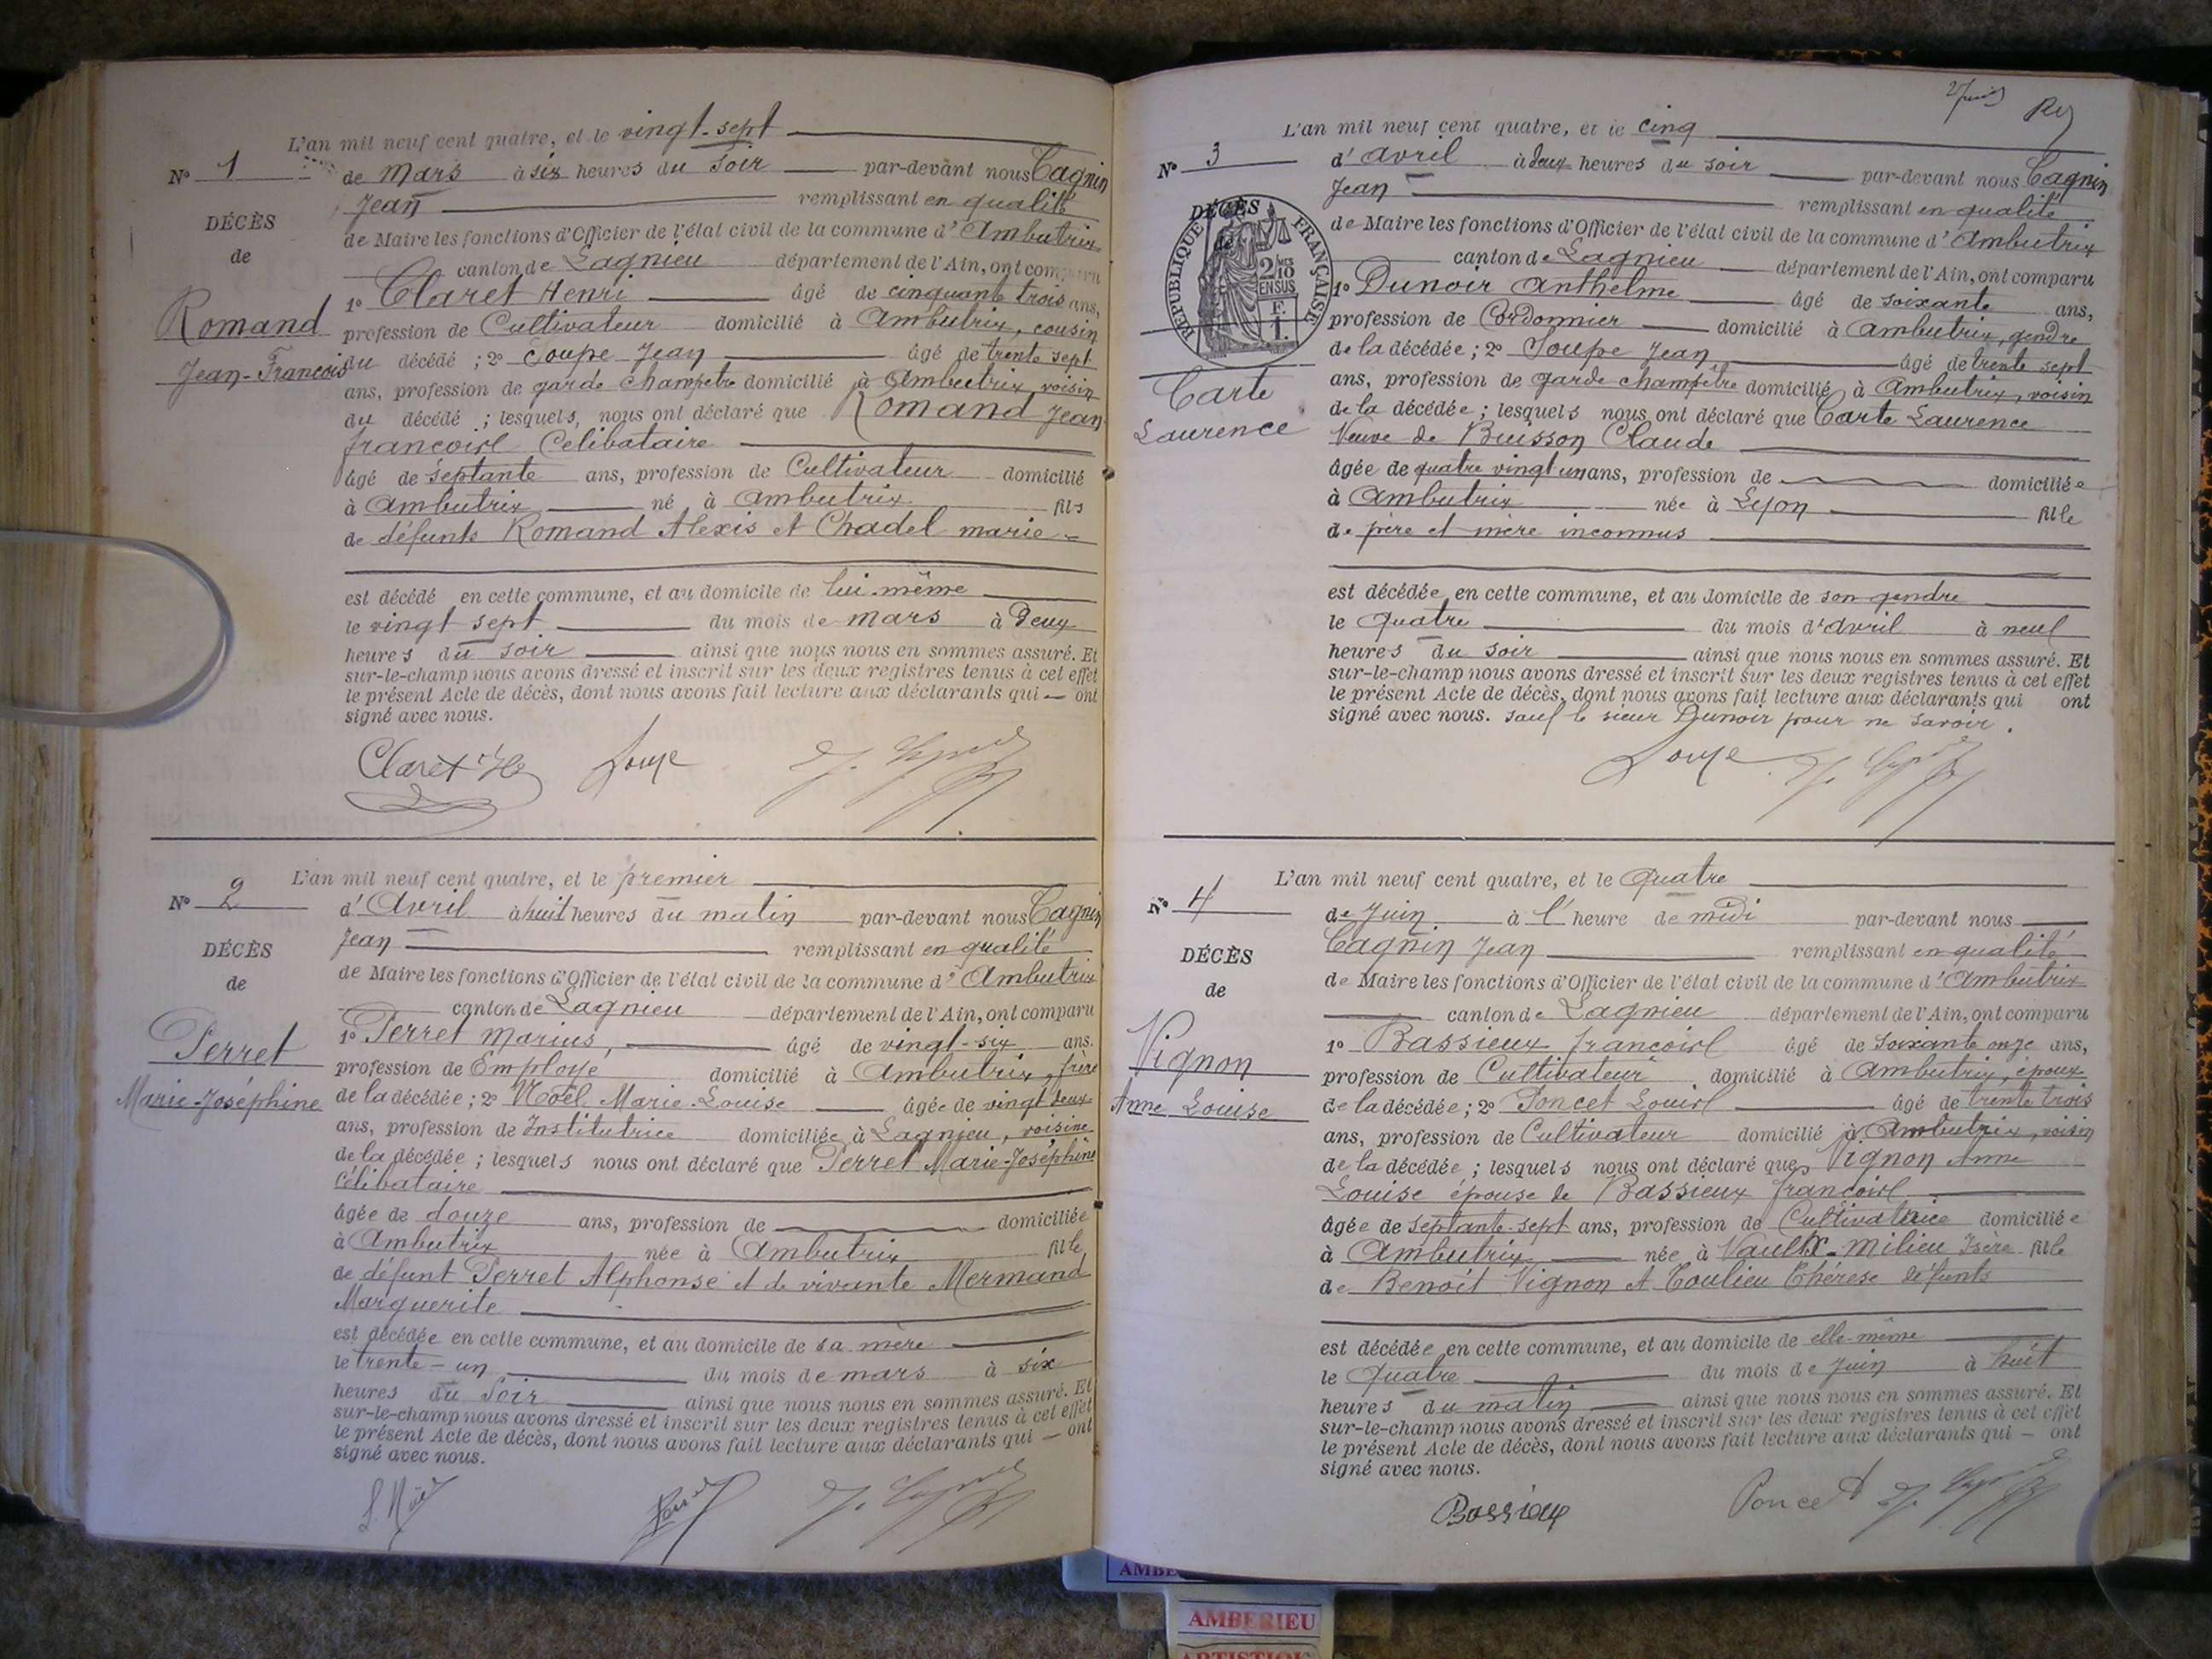 L'an mil neuf cent quatre, et le vingt-sept
N° 1
de Mars à six heures du soir par-devant nous Cagnin
Jean remplissant en qualité
DÉCÈS
de Maire les fonctions d'Officier de l'état civil de la commune d'Ambutrix
de
canton de Lagnieu département de l'Ain, ont comparu
1° Claret Henri âgé de cinquante trois ans,
Romand
profession de Cultivateur domicilié à Ambutrix, cousin
Jean-François
du décédé ; 2° Soupe Jean âgé de trente sept
ans, profession de garde champêtre domicilié à Ambutrix, voisin
du décédé ; lesquels, nous ont déclaré que Romand Jean
François Celibataire
âgé de septante ans, profession de Cultivateur domicilié
à Ambutrix né à Ambutrix fils
de défunts Romand Alexis et Chadel marie
est décédé en cette commune, et au domicile de lui-même
le vingt sept du mois de mars à Deux
heures du soir ainsi que nous nous en sommes assuré. Et
sur-le-champ nous avons dressé et inscrit sur les deux registres tenus à cet effet
le présent Acte de décès, dont nous avons fait lecture aux déclarants qui ont
signé avec nous.
Claret Soupe
L'an mil neuf cent quatre, et le premier
N° 2
d'Avril à huit heures du matin par-devant nous Cagnin
Jean remplissant en qualité
DÉCÈS
de Maire les fonctions d'Officier de l'état civil de la commune d'Ambutrix
de
canton de Lagnieu département de l'Ain, ont comparu
1° Perret Marius, âgé de vingt-six ans.
Perret
profession de Employé domicilié à Ambutrix, frère
Marie-Joséphine
de la décédée ; 2° Noël Marie-Louise âgée de vingt deux
ans, profession de Institutrice domiciliée à Lagnieu, voisine
de la décédée ; lesquels nous ont déclaré que Perret Marie-Joséphine
Célibataire
âgée de douze ans, profession de domiciliée
à Ambutrix née à Ambutrix fille
de défunt Perret Alphonse et de vivante Mermand
Marguerite
est décédée en cette commune, et au domicile de sa mère
le trente-un du mois de mars à six
heures du Soir ainsi que nous nous en sommes assuré. Et
sur-le-champ nous avons dressé et inscrit sur les deux registres tenus à cet effet
le présent Acte de décès, dont nous avons fait lecture aux déclarants qui — ont
signé avec nous.
L. Noël Perret
L'an mil neuf cent quatre, et le cinq
N° 3
d'Avril à deux heures du soir par-devant nous Cagnin
Jean remplissant en qualité
DÉCÈS
de
RÉPUBLIQUE FRANÇAISE
2/10 MES EN SUS
F. 1.
de Maire les fonctions d'Officier de l'état civil de la commune d'Ambutrix
canton de Lagnieu département de l'Ain, ont comparu
1° Dunoir Anthelme âgé de soixante ans,
profession de Cordonnier domicilié à Ambutrix, gendre
de la décédée ; 2° Soupe Jean âgé de trente sept
Carte
ans, profession de garde champêtre domicilié à Ambutrix, voisin
Laurence
de la décédée ; lesquels nous ont déclaré que Carte Laurence
Veuve de Buisson Claude
âgée de quatre vingt un ans, profession de domiciliée
à Ambutrix née à Lyon fille
de père et mère inconnus
est décédée en cette commune, et au domicile de son gendre
le Quatre du mois d'Avril à neuf
heures du soir ainsi que nous nous en sommes assuré. Et
sur-le-champ nous avons dressé et inscrit sur les deux registres tenus à cet effet
le présent Acte de décès, dont nous avons fait lecture aux déclarants qui ont
signé avec nous. sauf le sieur Dunoir pour ne savoir.
Soupe
L'an mil neuf cent quatre, et le Quatre
N° 4
de Juin à l'heure de midi par-devant nous
Cagnin Jean remplissant en qualité
DÉCÈS
de Maire les fonctions d'Officier de l'état civil de la commune d'Ambutrix
de
canton de Lagnieu département de l'Ain, ont comparu
1° Bassieux François âgé de Soixante onze ans,
Vignon
profession de Cultivateur domicilié à Ambutrix, époux
Anne Louise
de la décédée ; 2° Poncet Louis âgé de trente trois
ans, profession de Cultivateur domicilié à Ambutrix, voisin
de la décédée ; lesquels nous ont déclaré que Vignon Anne
Louise épouse de Bassieux François
âgée de septante-sept ans, profession de Cultivatrice domiciliée
à Ambutrix née à Vaulx-Milieu Isère fille
de Benoît Vignon et Coulieu Thérese défunts
est décédée en cette commune, et au domicile de elle-même
le Quatre du mois de juin à huit
heures du matin ainsi que nous nous en sommes assuré. Et
sur-le-champ nous avons dressé et inscrit sur les deux registres tenus à cet effet
le présent Acte de décès, dont nous avons fait lecture aux déclarants qui — ont
signé avec nous.
Bassieux Poncet
AMBERIEU